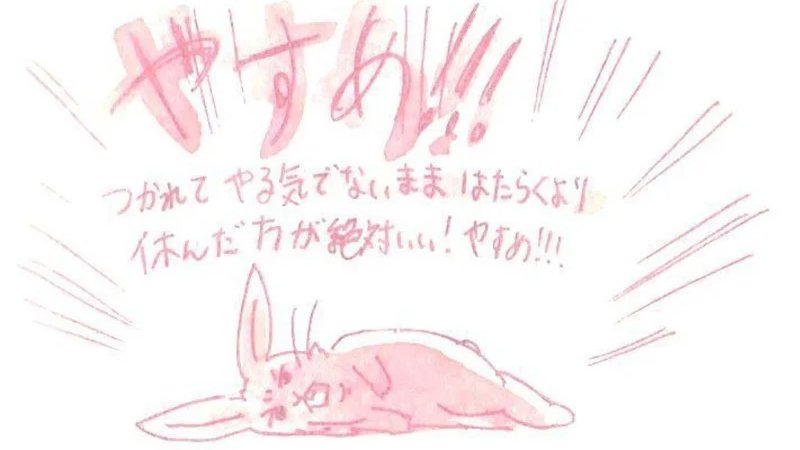 やすめ!!!
つかれて やる気でないまま はたらくより
休んだ方が絶対いい! やすめ!!!